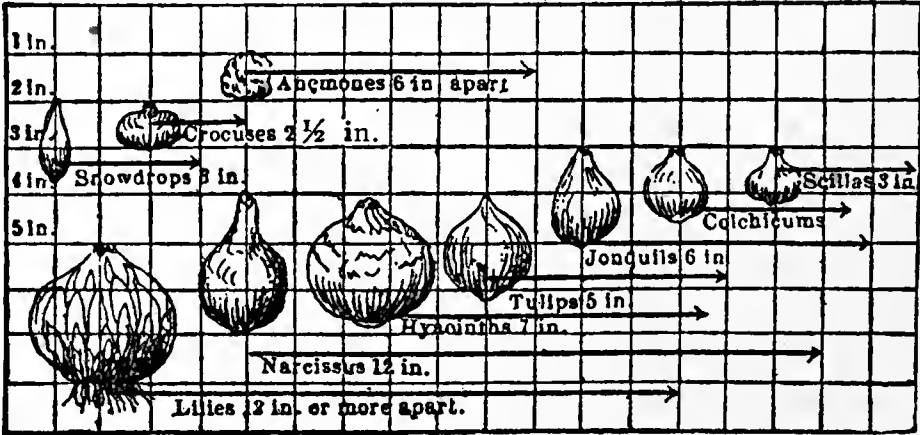 1 in.
2 in.
Anemones 6 in apart
3 in.
Crocuses 2 ½ in.
4 in.
Snowdrops 3 in.
Scillas 3 in
Colchicums
5 in.
Jonquils 6 in
Tulips 5 in.
Hyacinths 7 in.
Narcissus 12 in.
Lilies 12 in. or more apart.